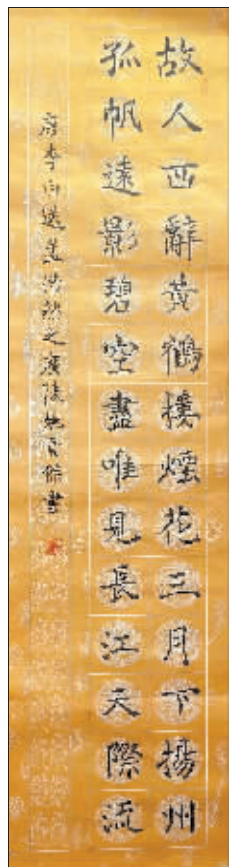 故人西辭黃鶴樓煙花三月下揚州
孤帆遠影碧空盡唯見長江天際流
唐李白送孟浩然之廣陵